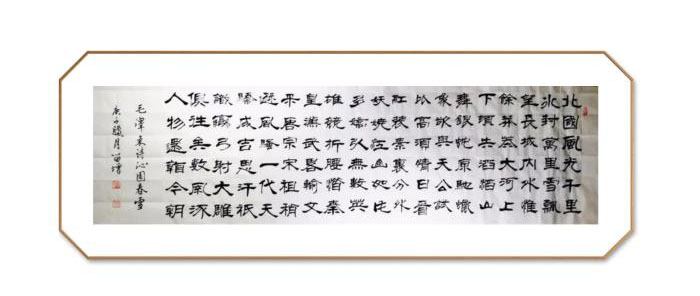 北國風光千里
冰封萬里雪飄
望長城内外惟
餘莽莽大河上
下頓失滔滔山
舞銀蛇原馳蠟
象欲與天公試
比高須晴日看
紅裝素裹分外
妖嬈江山如此
多嬌引無數英
雄競折腰惜秦
皇漢武略輸文
采唐宗宋祖稍
遜風騷一代天
驕成吉思汗祇
識彎弓射大雕
俱往矣數風流
人物還看今朝
毛澤東詩沁園春雪
庚子臘月